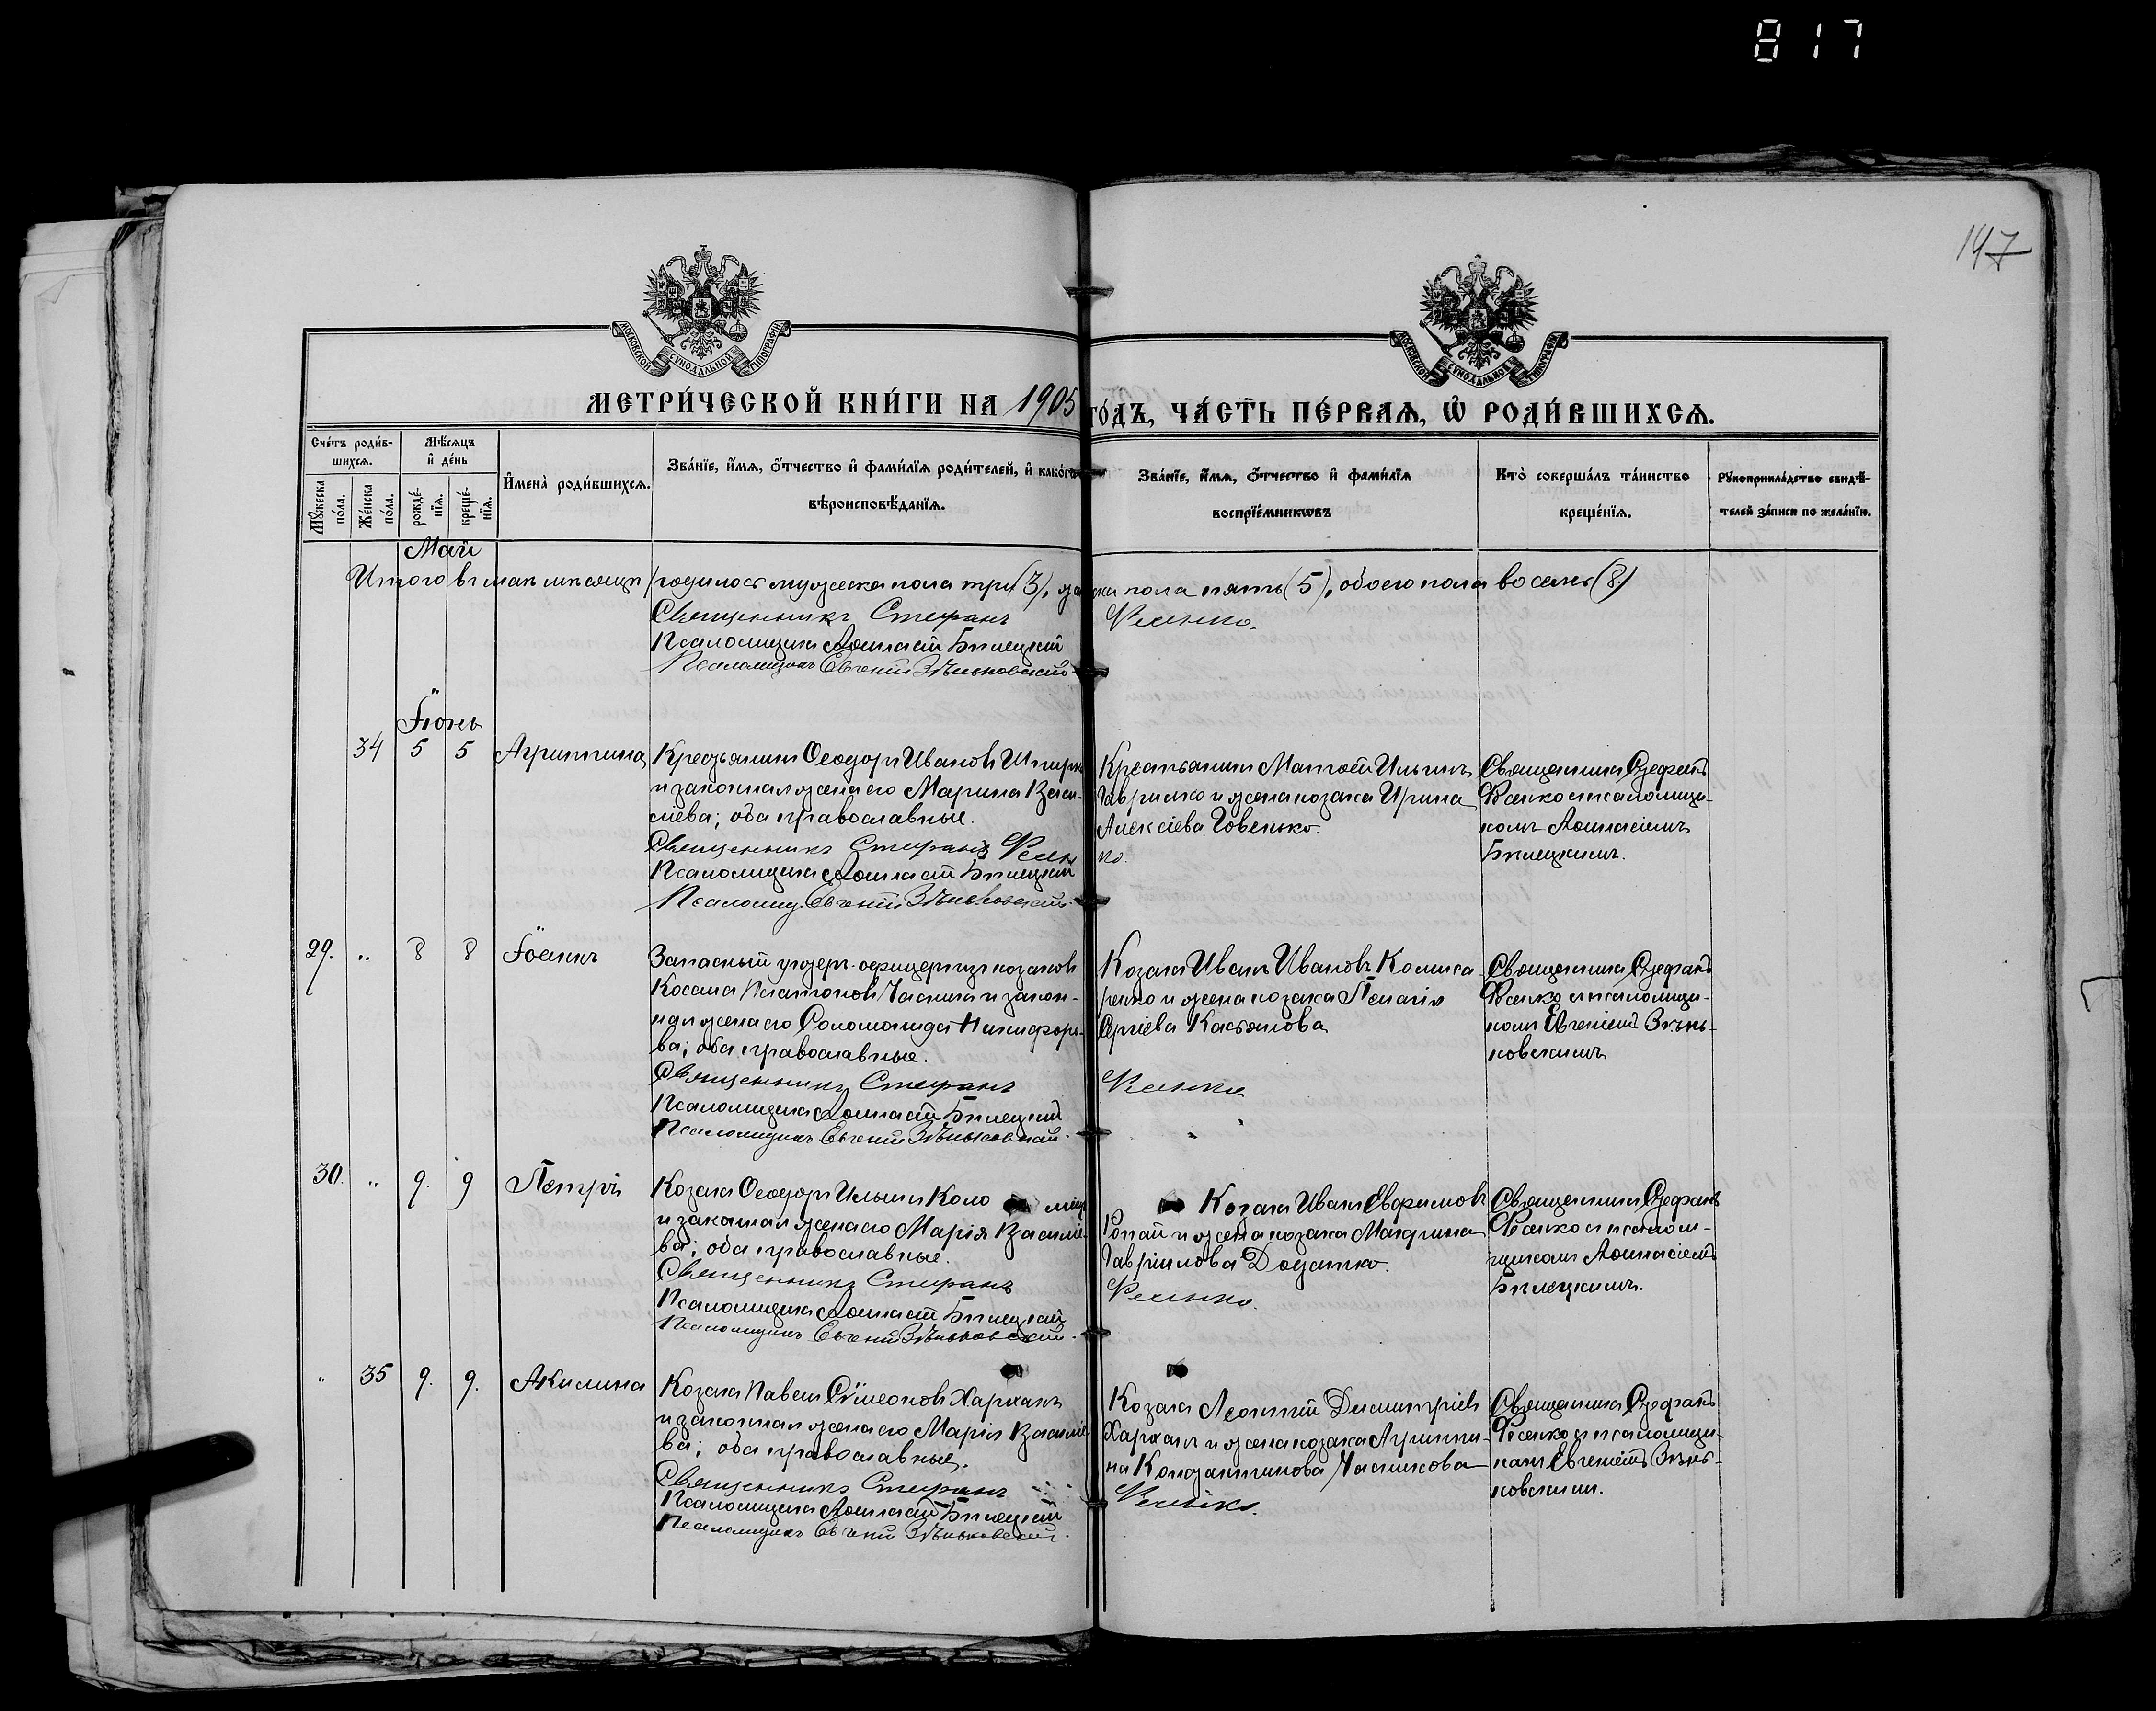 817
147
МОСКОВСКОЙ СѴНОДАЛЬНОЙ ТИПОГРАФІИ
МОСКОВСКОЙ СѴНОДАЛЬНОЙ ТИПОГРАФІИ
МЕТРИ́ЧЕСКОЙ КНИ́ГИ НА 1905 ГО́ДЪ, ЧА́СТЬ ПЕ́РВАЯ, Ѽ РОДИ́ВШИХСЯ.
Сче́тъ роди́в-
шихся.
Мѣ́сяцъ
и҆ де́нь
Мꙋ́жеска
по́ла.
Же́нска
по́ла.
рожде́-
нїя.
креще́-
нїя.
И҆мена̀ роди́вшихся.
Зва́нїе, и҆́мя, ѻ҆́тчество и҆ фами́лїя роди́телей, и҆ како́гѡ
вѣроисповѣ́данїя.
Зва́нїе, и҆́мя, ѻ҆́тчество и҆ фами́лїя
воспрїе́мникѡвъ
Кто̀ соверша́лъ та́инство
креще́нїя.
Рꙋкоприкла́дство свидѣ́-
телей за́писи по жела́нїю.
Май
Итого въ маѣ мѣсяцѣ родилось мужеска пола три (3), женска пола пять (5), обоего пола восемь (8)
Священникъ Стефанъ Фесенко.
Псаломщикъ Аѳанасій Бѣлецкій
Псаломщикъ Евгеній Зѣньковскій
Іюнь
34 5 5 Агриппина
Крестьянинъ Ѳеодоръ Ивановъ
и законная жена его Марина Васи-
ліева; оба православные.
Священникъ Стефанъ Фесен
ко.
Псаломщикъ Аѳанасій Бѣлецкій
Псаломщ. Евгеній Зѣньковскій.
Крестьянинъ Матѳей Ильинъ
Гаврилко и жена козака Ирина
Алексіева Говенько.
Священникъ Стефанъ
Фесенко и псаломщи-
комъ Аѳанасіемъ
Бѣлецкимъ.
29. „ 8 8 Іоаннъ
Запасный унтеръ-офицеръ изъ козаковъ
Косьма Платоновъ Часникъ и закон-
ная жена его Соломонида Никифоро-
ва; оба православные.
Священникъ Стефанъ Фесенко
Псаломщикъ Аѳанасій Бѣлецкій
Псаломщикъ Евгеній Зѣньковскій.
Козакъ Иванъ Ивановъ Комиса
ренко и жена козака Пелагія
Сергіева Касьянова
Священникъ Стефанъ
Фесенко и псаломщи-
комъ Евгеніемъ Зѣнь-
ковскимъ
30. „ 9. 9 Петръ
Козакъ Ѳеодоръ Ильинъ Коло
и законная жена его Марія Василіе-
ва; оба православные.
Священникъ Стефанъ Фесенко.
Псаломщикъ Аѳанасій Бѣлецкій
Псаломщикъ Евгеній Зѣньковскій.
Козакъ Иванъ Евфимовъ
Ропай и жена козака Макрина
Гавріилова Додатко.
Священникъ Стефанъ
Фесенко и псалом-
щикомъ Аѳанасіемъ
Бѣлецкимъ.
„ 35 9. 9. Акилина
Козакъ Павелъ Сѷмеоновъ Харханъ
и законная жена его Марія Василіе
ва; оба православные.
Священникъ Стефанъ Фесенко.
Псаломщикъ Аѳанасій Бѣлецкій
Псаломщикъ Евгеній Зѣньковскій.
Козакъ Леонтій Димитріевъ
Харханъ и жена козака Агриппи-
на Константинова Часникова
Священникъ Стефанъ
Фесенко и псаломщи-
комъ Евгеніемъ Зѣнь-
ковскимъ.